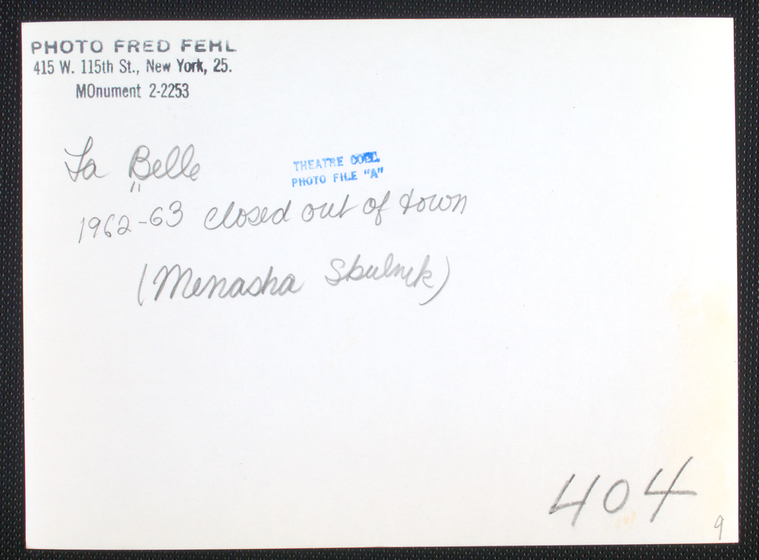 PHOTO FRED FEHL
415 W. 115th St., New York, 25.
MOnument 2-2253
THEATRE COLL.
PHOTO FILE "A"
La Belle
"
1962-63 closed out of town
(Menasha Skulnik)
404
9